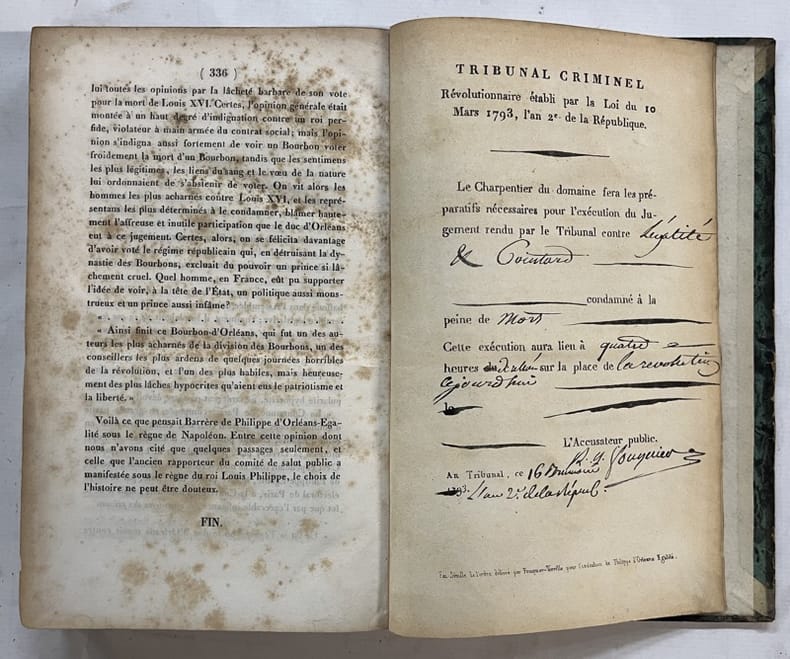 ( 336 )
lui toutes les opinions par la lâcheté barbare de son vote
pour la mort de Louis XVI. Certes, l'opinion générale était
montée à un haut degré d'indignation contre un roi per-
fide, violateur à main armée du contrat social; mais l'opi-
nion s'indigna aussi fortement de voir un Bourbon voter
froidement la mort d'un Bourbon, tandis que les sentimens
les plus légitimes, les liens du sang et le vœu de la nature
lui ordonnaient de s'abstenir de voter. On vit alors les
hommes les plus acharnés contre Louis XVI, et les repré-
sentans les plus déterminés à le condamner, blâmer haute-
ment l'affreuse et inutile participation que le duc d'Orléans
eut à ce jugement. Certes, alors, on se félicita davantage
d'avoir voté le régime républicain qui, en détruisant la dy-
nastie des Bourbons, excluait du pouvoir un prince si lâ-
chement cruel. Quel homme, en France, eût pu supporter
l'idée de voir, à la tête de l'État, un politique aussi mons-
trueux et un prince aussi infâme?
« . . . . . . . . . . . . . . . . . . . . . . .
« Ainsi finit ce Bourbon-d'Orléans, qui fut un des au-
teurs les plus acharnés de la division des Bourbons, un des
conseillers les plus ardens de quelques journées horribles
de la révolution, et l'un des plus habiles, mais heureuse-
ment des plus lâches hypocrites qu'aient eus le patriotisme et
la liberté. »
Voilà ce que pensait Barrère de Philippe d'Orléans-Éga-
lité sous le règne de Napoléon. Entre cette opinion dont
nous n'avons cité que quelques passages seulement, et
celle que l'ancien rapporteur du comité de salut public a
manifestée sous le règne du roi Louis Philippe, le choix de
l'histoire ne peut être douteux.
FIN.
TRIBUNAL CRIMINEL
Révolutionnaire établi par la Loi du 10
Mars 1793, l'an 2e. de la République.
Le Charpentier du domaine fera les pré-
paratifs nécessaires pour l'exécution du Ju-
gement rendu par le Tribunal contre Légalité
& Coustard
condamné à la
peine de Mort
Cette exécution aura lieu à quatre
heures sur la place de la revolution
cejourdhui
L'Accusateur public.
Au Tribunal, ce 16 Brumaire fouquier
1793. L'an 2e. de la Répub.
Fac-Simile de l'ordre délivré par Fouquier-Tinville pour l'exécution de Philippe d'Orléans Egalité.